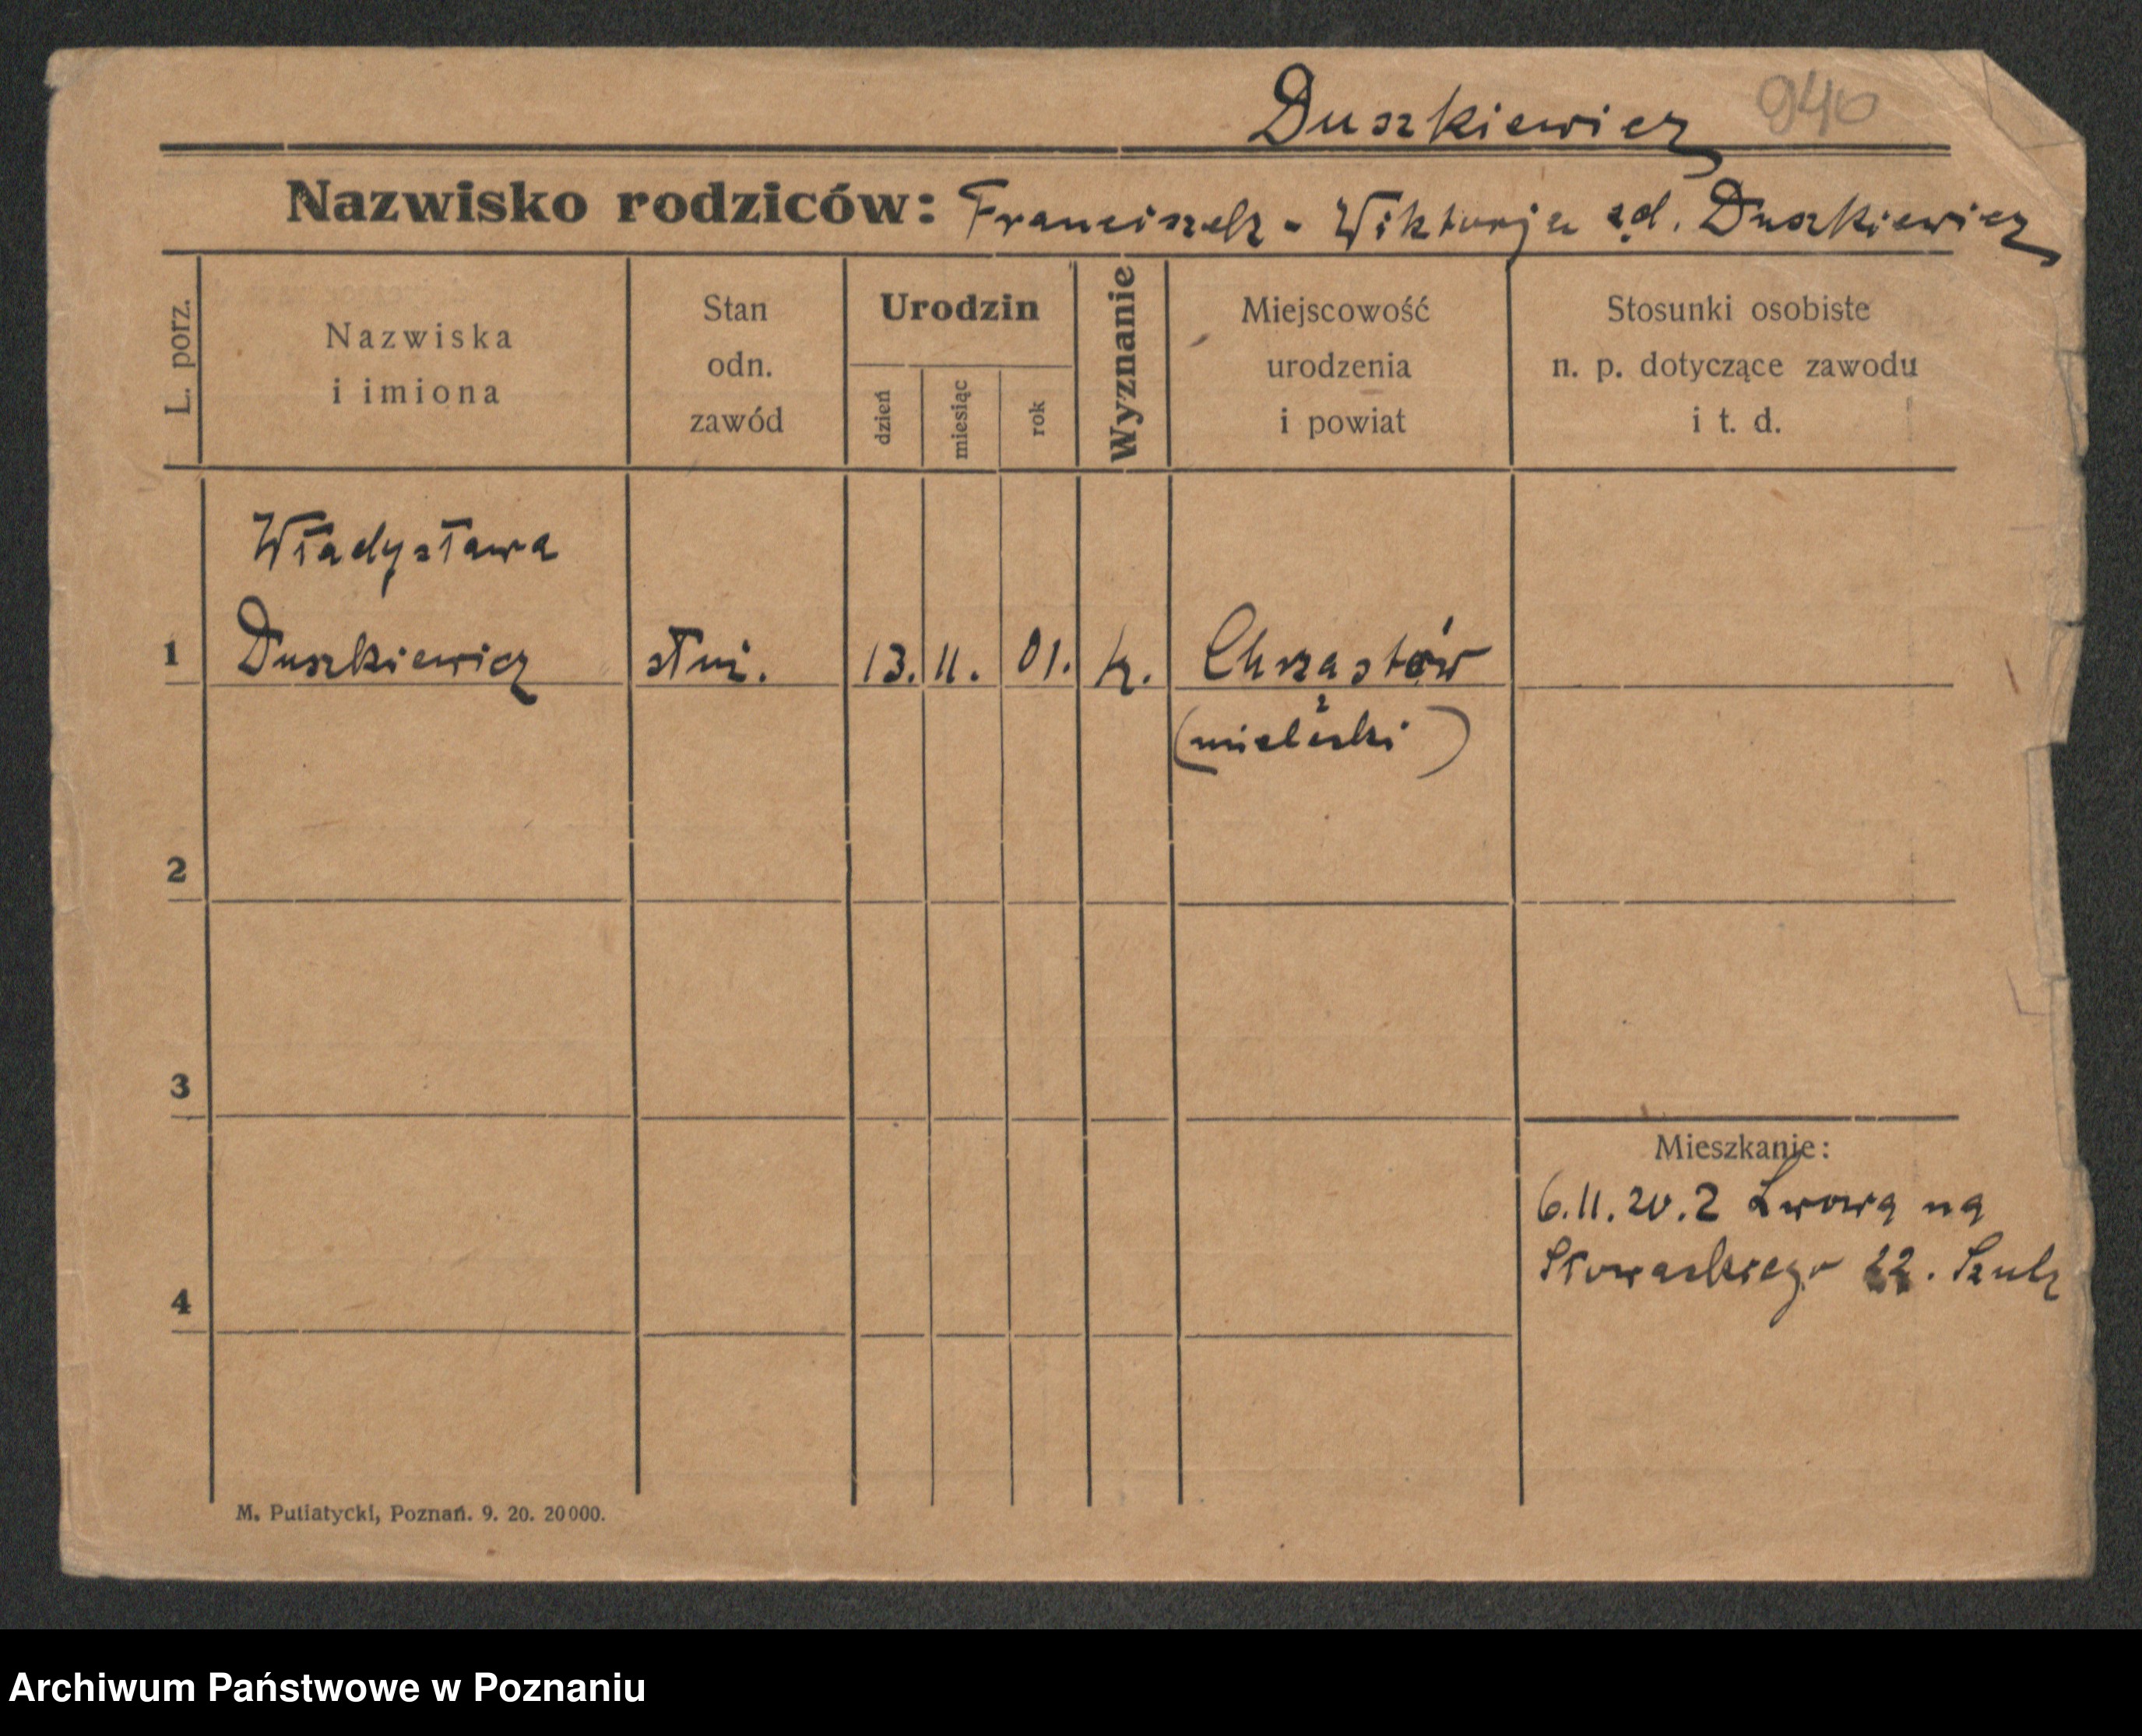 Duszkiewicz 940
Nazwisko rodziców: Franciszek - Wiktorja zd. Duszkiewicz
L. porz.
Nazwiska
i imiona
Stan
odn.
zawód
Urodzin
dzień
miesiąc
rok
Wyznanie
Miejscowość
urodzenia
i powiat
Stosunki osobiste
n. p. dotyczące zawodu
i t. d.
Władysława
1 Duszkiewicz służ. 13. 11. 01. k. Chrząstów
(mielecki)
2
3
Mieszkanie:
6.11.20. z Lwowa na
Słowackiego 22. Szulz
4
M. Putiatycki, Poznań. 9. 20. 20000.
Archiwum Państwowe w Poznaniu